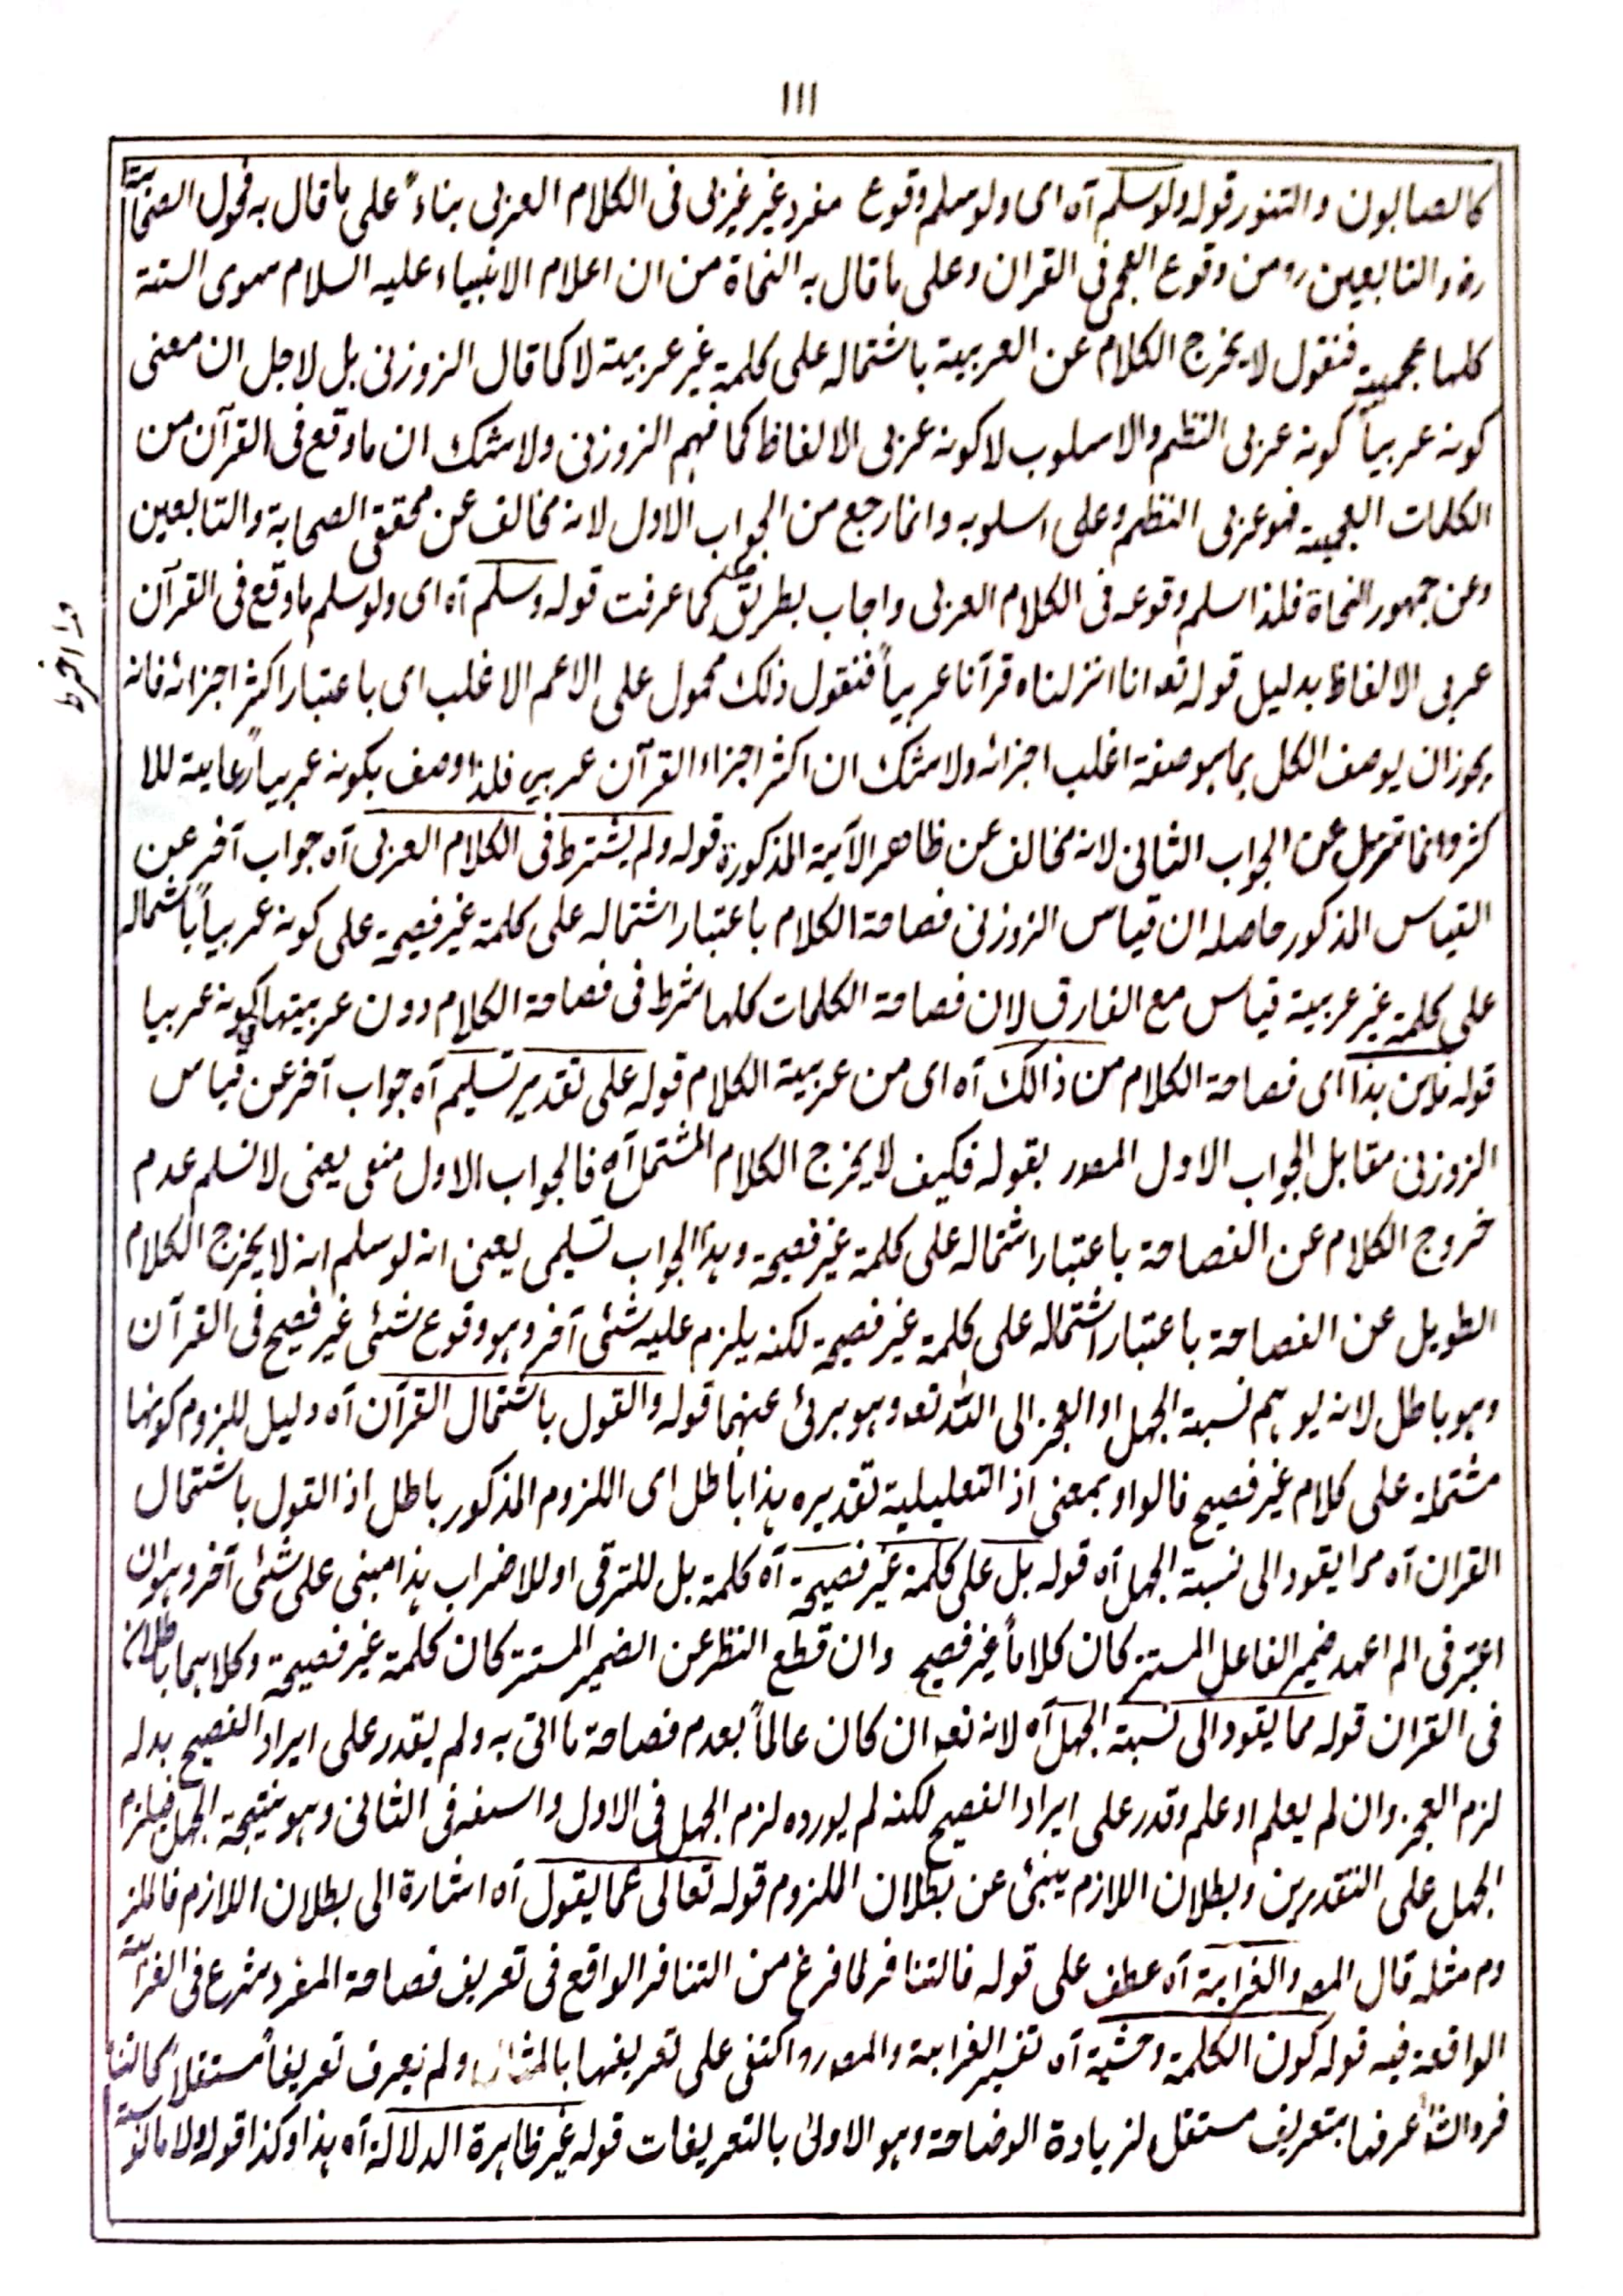 ١١١
كالصابون والتنور قوله ولوسلم آه اى ولوسلم وقوع مفرد غير عربى فى الكلام العربى بناءً على ما قال به فحول الصحابة
رض والتابعين رح من وقوع العجمى فى القران وعلى ما قال به النحاة من ان اعلام الانبياء عليه السلام سوى الستة
كلها عجمية فنقول لا يخرج الكلام عن العربية باشتماله على كلمة غير عربية لا كما قال الزوزنى بل لاجل ان معنى
كونه عربياً كونه عربى النظم والاسلوب لا كونه عربى الالفاظ كما فهم الزوزنى ولا شك ان ما وقع فى القرآن من
الكلمات العجمية فهو عربى النظم وعلى اسلوبه وانما رجع من الجواب الاول لانه مخالف عن محققى الصحابة والتابعين
وعن جمهور النحاة فلذا سلم وقوعه فى الكلام العربى واجاب بطريق كما عرفت قوله وسلم آه اى ولوسلم ما وقع فى القرآن
عربى الالفاظ بدليل قوله تعه انا انزلناه قرآنا عربياً فنقول ذلك محمول على الاعم الاغلب اى باعتبار اكثر اجزائه فانه
يجوز ان يوصف الكل بما هو صفة اغلب اجزائه ولا شك ان اكثر اجزاء القرآن عربي فلذا وصف بكونه عربياً رعاية للا
كثر وانما تنزل عن الجواب الثانى لانه مخالف عن ظاهر الآية المذكورة قوله ولم يشترط فى الكلام العربى آه جواب آخر عن
القياس المذكور حاصله ان قياس الزوزنى فصاحة الكلام باعتبار اشتماله على كلمة غير فصيحة على كونه عربياً باشتماله
على كلمة غير عربية قياس مع الفارق لان فصاحة الكلمات كلها شرط فى فصاحة الكلام دون عربيتها لكونه عربيا
قوله فاين هذا اى فصاحة الكلام من ذالك آه اى من عربية الكلام قوله على تقدير تسليم آه جواب آخر عن قياس
الزوزنى مقابل الجواب الاول المصدر بقوله فكيف لا يخرج الكلام المشتمل آه فالجواب الاول منعى يعنى لا نسلم عدم
خروج الكلام عن الفصاحة باعتبار اشتماله على كلمة غير فصيحة وهذا الجواب تسليمى يعنى انه لوسلم انه لا يخرج الكلام
الطويل عن الفصاحة باعتبار اشتماله على كلمة غير فصيحة لكنه يلزم عليه شئى آخر وهو وقوع شئى غير فصيح فى القرآن
وهو باطل لانه يوهم نسبة الجهل او العجز الى الله تعه وهو برئ عنهما قوله والقول باشتمال القرآن آه دليل للزوم كونها
مشتملة على كلام غير فصيح فالواو بمعنى اذ التعليلية تقديره هذا باطل اى اللزوم المذكور باطل اذ القول باشتمال
القران آه مما يقود الى نسبة الجهل آه قوله بل على كلمة غير فصيحة آه كلمة بل للترقى او للاضراب هذا مبنى على شئى آخر وهو ان
اعتبر فى الم اعهد ضمير الفاعل المستتر كان كلاماً غير فصيح وان قطع النظر عن الضمير المستتر كان كلمة غير فصيحة وكلاهما باطلان
فى القران قوله مما يقود الى نسبة الجهل آه لانه تعه ان كان عالماً بعدم فصاحة ما اتى به ولم يقدر على ايراد الفصيح بدله
لزم العجز وان لم يعلم او علم وقدر على ايراد الفصيح لكنه لم يورده لزم الجهل فى الاول والسفه فى الثانى وهو نتيجة الجهل فيلزم
الجهل على التقديرين وبطلان اللازم ينبئ عن بطلان اللزوم قوله تعالى عما يقول آه اشارة الى بطلان اللازم فالملز
وم مثله قال المصـ والغرابة آه عطف على قوله فالتنافر لما فرغ من التنافر الواقع فى تعريف فصاحة المفرد شرع فى الغرابة
الواقعة فيه قوله كون الكلمة وحشية آه تفسير الغرابة والمصـ رح اكتفى على تعريفها بالمثال ولم يعرف تعريفاً مستقلاً كالتنا
فر والشـ عرفها بتعريف مستقل لزيادة الوضاحة وهو الاولى بالتعريفات قوله غير ظاهرة الدلالة آه هذا وكذا قوله ولا مانوسة